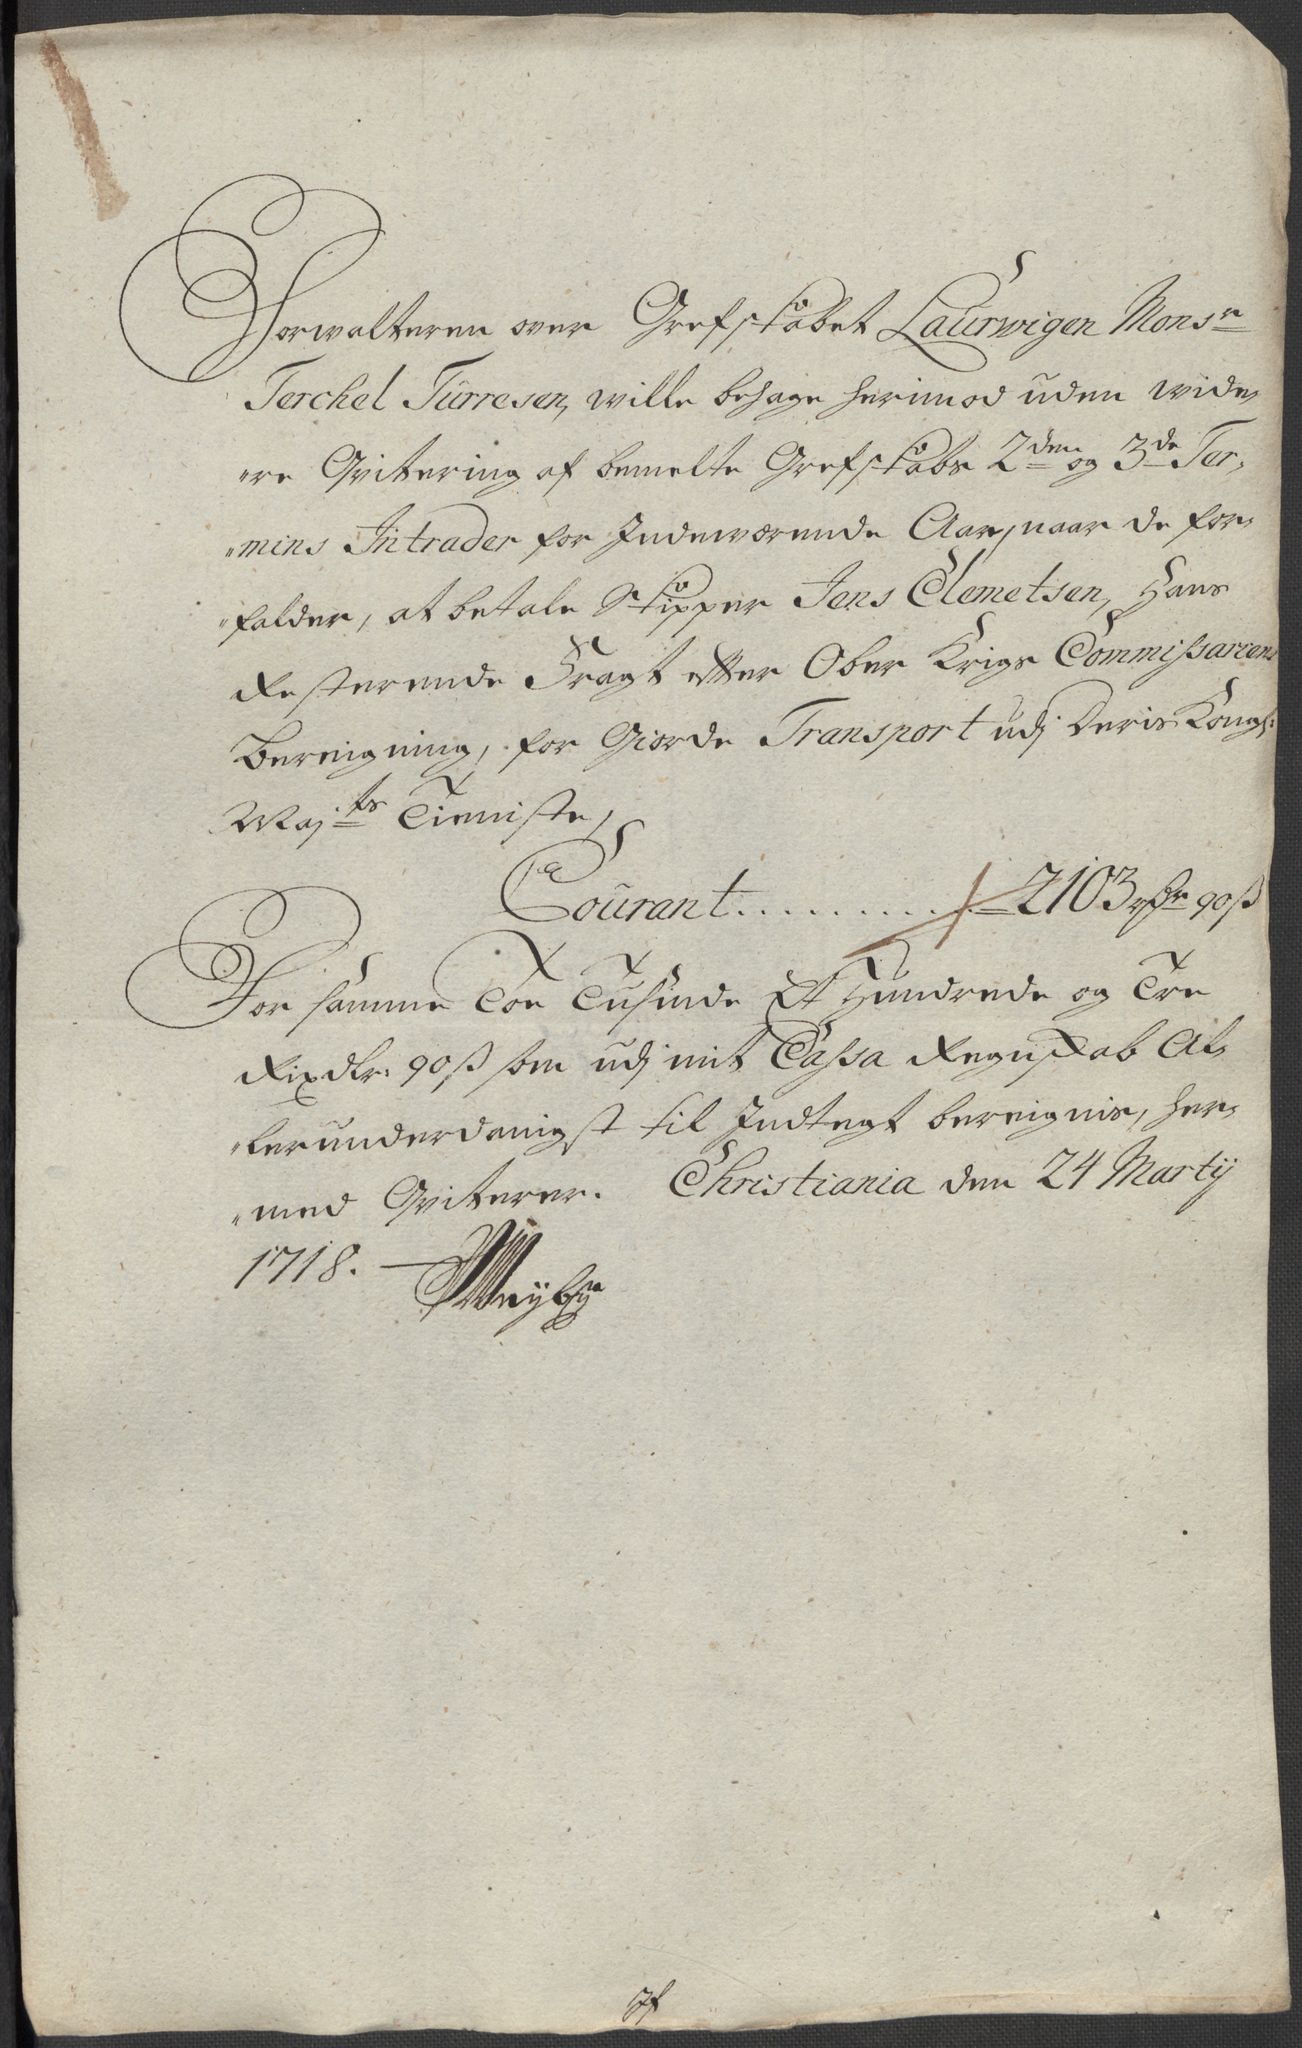 Forwalteren over Grefskabet Laurwigen Monsr
Terchel Türresen, wille behage herimod uden wide,
„re Qvitering af bemelte Grefskabs 2den og 3de Ter,
„mins Intrader for Indewærende Aar, naar de for,
„falder, at betale Skipper Jens Clemetsen, Hans
Resterende Fragt efter Ober Krigs Commissariens
Bereigning, for Giorde Transport udj Deris Kongl:
Majts Tieniste,
Courant . . . . . . . . . 2103 rdr 90 ß
For samme Toe Tusinde Et Hundrede og Tre
Rixdlr: 90 ß som udj mit Cassa Regnskab Al,
„lerunderdanigst til Indtegt bereignis, her,
„med Qviterer. Christiania den 24 Martij
1718.